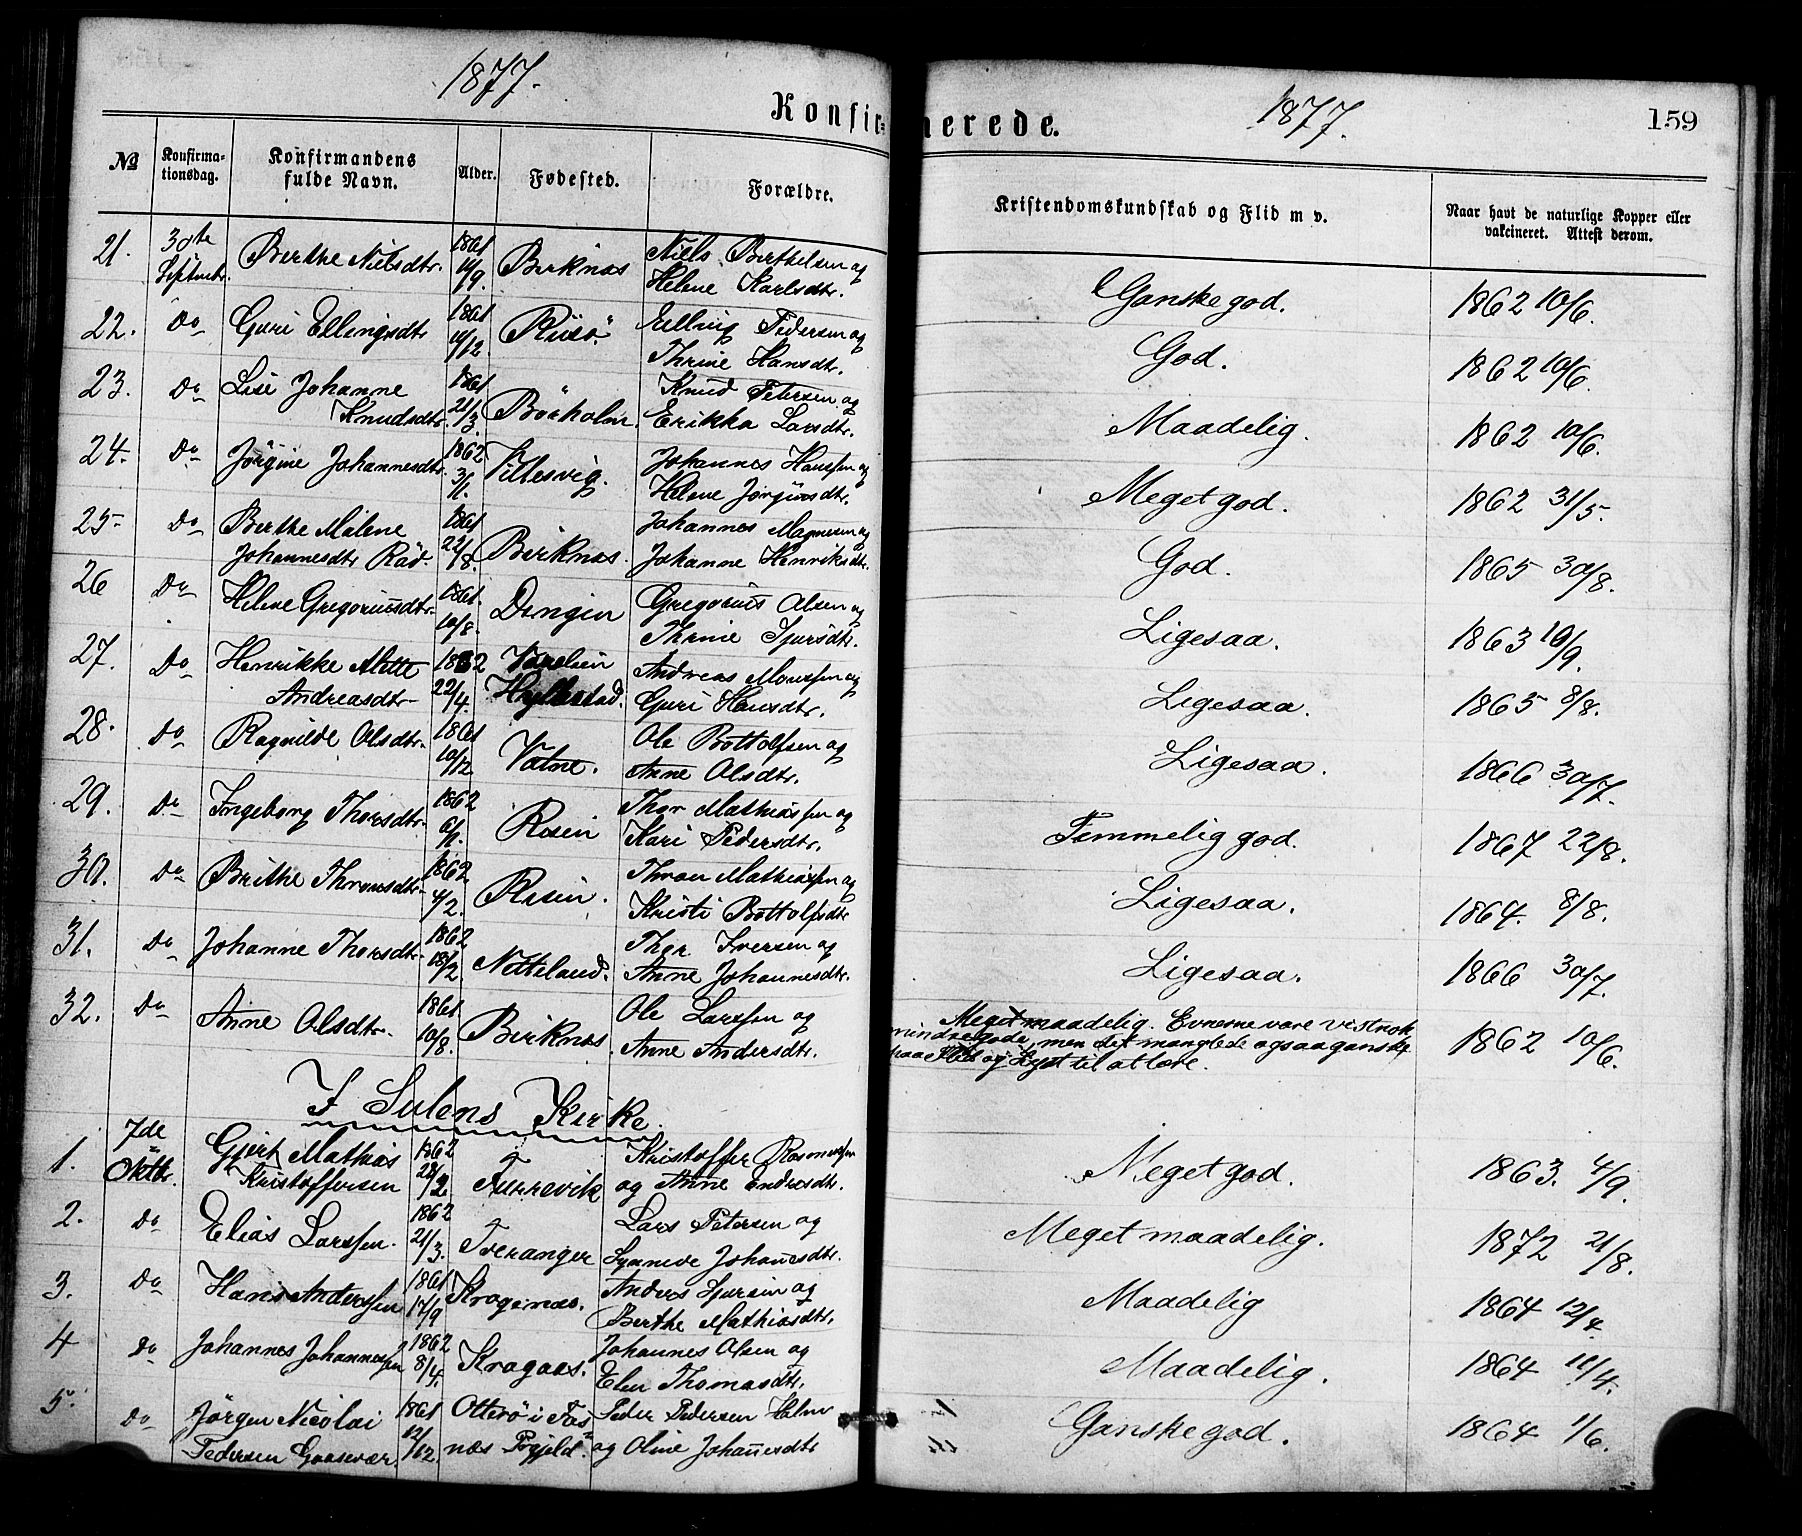 1877.
Konfir-
№
Konfirma-
tionsdag.
Konfirmandens
fulde Navn.
Alder.
Fødested.
Forældre.
21. 30te Septembr. Berthe Nilsdtr. 1861 19/9. Birknæs Niels Berthelsen og
Helene Karlsdtr.
22. Do Guri Ellingsdtr 1861 19/12 Risö Elling Pedersen og
Thrine Hansdtr.
23. Do Lisi Johanne 1861 Knud Petersen og
Knudsdtr. 21/3. Börholm. Erikka Larsdtr.
24. Do Jörgine Johannesdtr. 1862 3/1. Villesvig. Johannes Hanssen og
Helene Jørginsdtr.
25. Do Berthe Malene 1861 Johannes Magnesen og
Johannesdtr Räd. 22/8. Birknæs. Johanne Henriksdtr.
26 Do Helene Gregoriusdtr. 1861. 10/8. Dingen Gregorius Olsen og
Thrine Sjursdtr.
27. Do Henrikke Mette 1862 Andreas Monssen og
Andreasdtr 22/4. Hyllestad. Guri Hansdtr.
28. Do Ragnilde Olsdtr. 1861 10/12 Vatne. Ole Bottolfsen og
Anne Olsdtr.
29. Do Ingeborg Thorsdtr. 1862 6/1. Risin Thor Mathiassen og
Kari Pedersdtr.
30. Do Brithe Thronsdtr 1862 4/2. Risin. Thron Mathiassen og
Kristi Bottolfsdtr
31. Do Johanne Thorsdtr. 1862 18/2 Nitteland. Thor Iversen og
Anne Johannesdtr.
32. Do Anne Olsdtr. 1861 10/8. Birknæs. Ole Larssen og
Anne Andersdtr.
I Sulens Kirke.
1. 7de Oktbr. Gjert Mathias 1862 Kristoffer Rasmussen
Kristoffersen 28/2. Furrevik og Anne Endresdtr.
2. Do Elias Larssen. 1862 21/3. Tveranger Lars Petersen og
Synneve Johannesdtr.
3. Do Hans Anderssen 1861 17/9 Kragenæs. Anders Sjursen og
Berthe Mathiasdtr.
4 Do Johannes Johannessen 1862 8/4. Kragaas. Johannes Olsen og
Elen Thomasdtr.
5. Do Jörgen Nicolai 1861 Otterö i Fos Peder Pedersen Holm
Pedersen Gaasevær. 12/12. næs Prgjeld. og Oline Johannesdtr
merede.
1877.
159
Kristendomskundskab og Flid m v.
Naar havt de naturlige Kopper eller
vakcineret. Attest derom.
Ganske god. 1862 10/6.
God. 1862 10/6.
Maadelig. 1862 10/6.
Meget god. 1862 31/5.
God. 1865 30/8.
Ligesaa. 1863 19/9.
Ligesaa. 1865 8/8.
Ligesaa. 1866 30/7.
Temmelig god. 1867 22/8.
Ligesaa. 1864. 8/8.
Ligesaa. 1866 30/7.
Meget maadelig. Evnerne vare vistnok
mindre gode, men det manglede ogsaa ganske
paa Flid og Lyst til at lære. 1862 10/6.
Meget god. 1863. 4/9.
Meget maadelig. 1872 21/8.
Maadelig 1864 12/4.
Maadelig. 1864 11/4.
Ganske god. 1864 1/6.